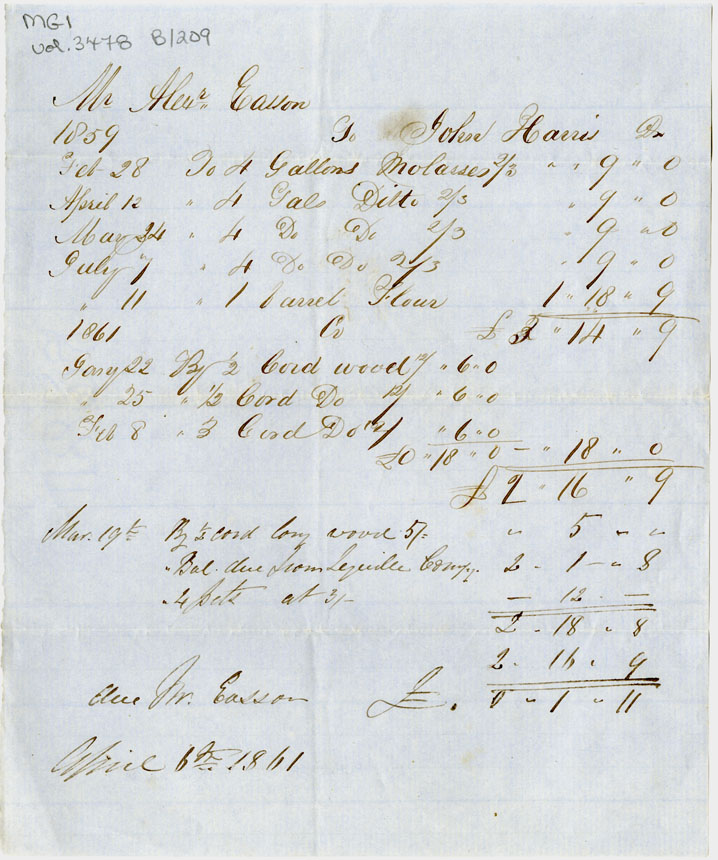 MG1
vol. 3478 B/209
Mr Alexr Easson
1859 To John Harris Dr
Feb 28 To 4 Gallons Molasses 2/3 " " 9 " 0
April 12 " 4 Gals Ditto 2/3 " 9 " 0
May 24 " 4 Do Do 2/3 " 9 " 0
July 7 " 4 Do Do 2/3 " 9 " 0
" 11 " 1 barrel Flour 1 " 18 " 9
1861 Cr £ 3 " 14 " 9
Jany 22 By 1/2 Cord wood 12/ " 6 " 0
" 25 " 1/2 Cord Do 12/ " 6 " 0
Feb 8 " Cord Do 12/ " 6 " 0
£0 " 18 " 0 - " 18 " 0
£ 2 " 16 " 9
Mar. 19th By 1/2 cord long wood 5/- " 5 " "
" Bal. due from Compy. 2 - 1 - 8
" 4 at 3/- - 12 -
2 - 18 - 8
2 - 16 - 9
due Mr. Easson £. 0 - 1 - 11
April 6th 1861